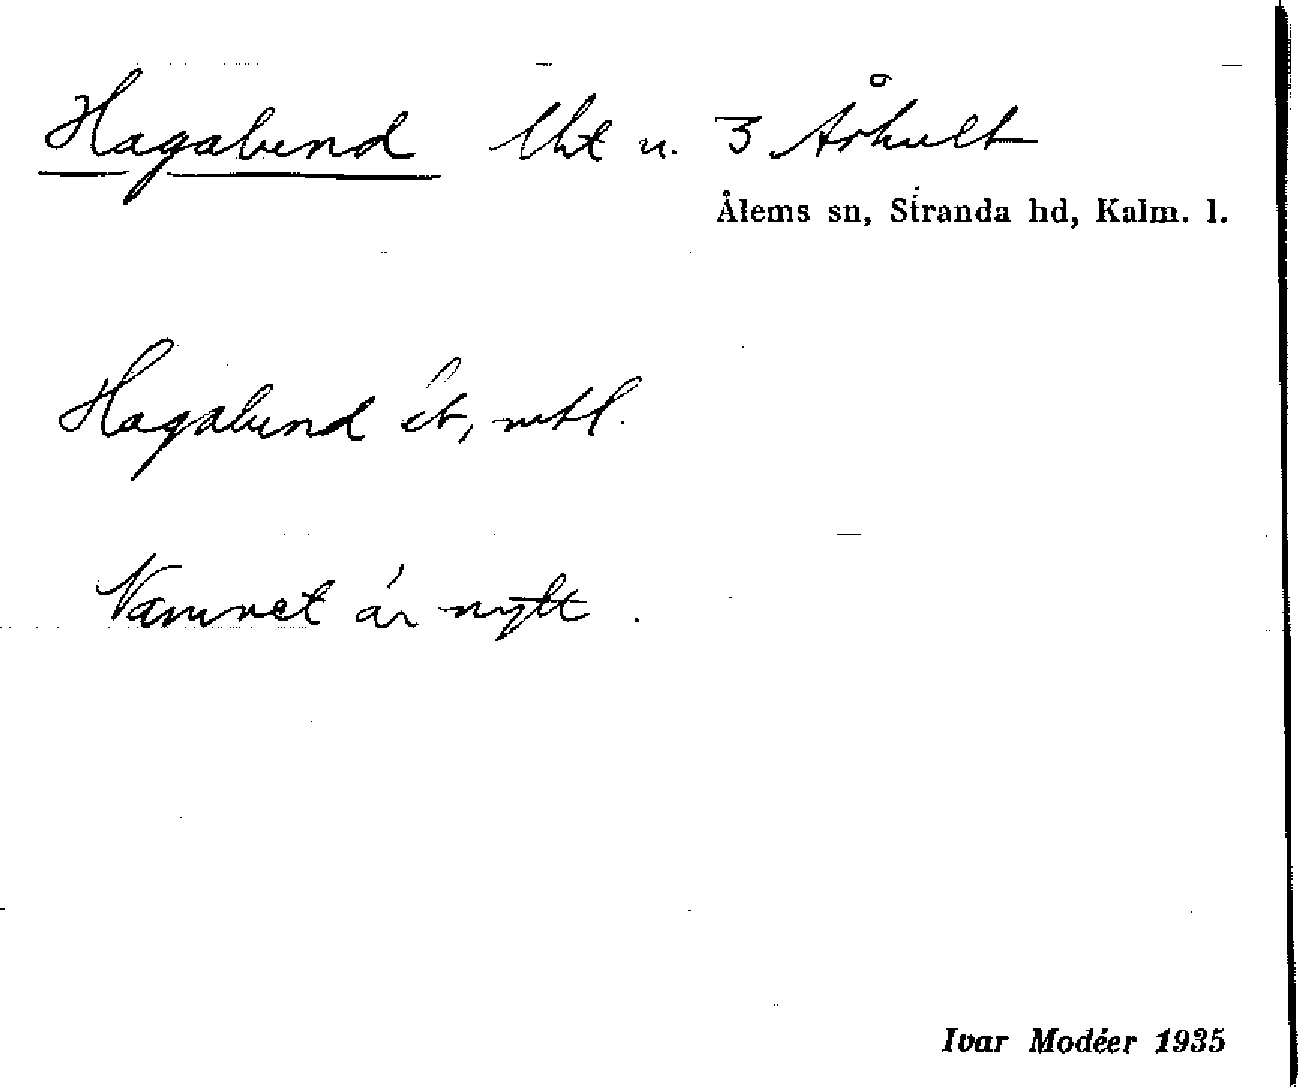 Hagalund lht u. 3 Århult
Ålems sn, Stranda hd, Kalm. l.
Hagalund ét, mtl.
Namnet är nytt.
Ivar Modéer 1935